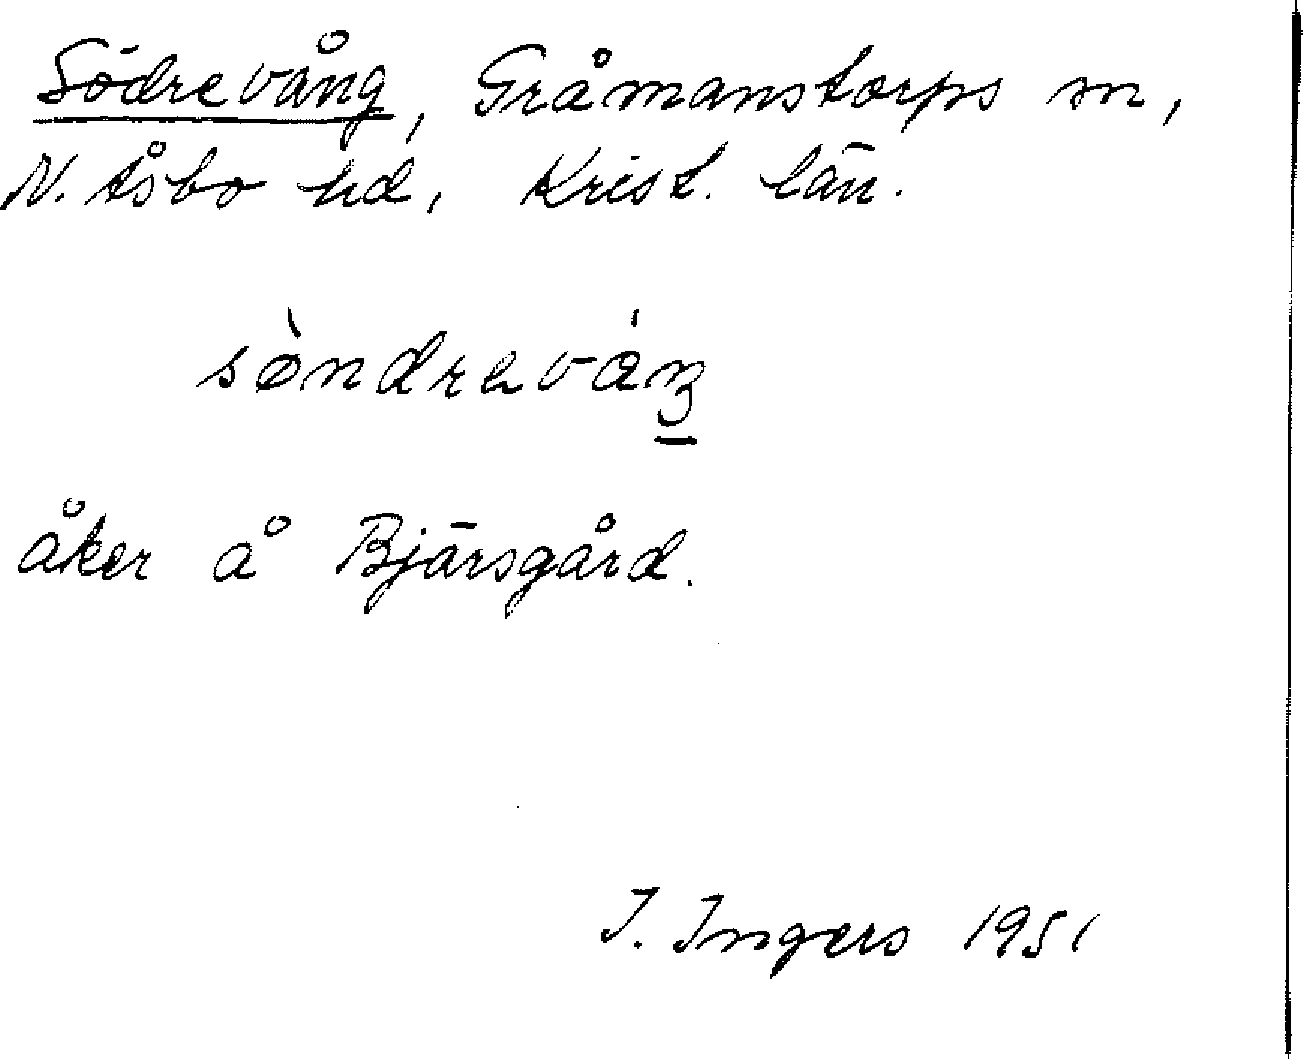 Södrevång, Gråmanstorps sn,
N. Åsbo hd, Krist. län.
sø̀ndreváŋ
åker å Bjärsgård.
I. Ingers 1951